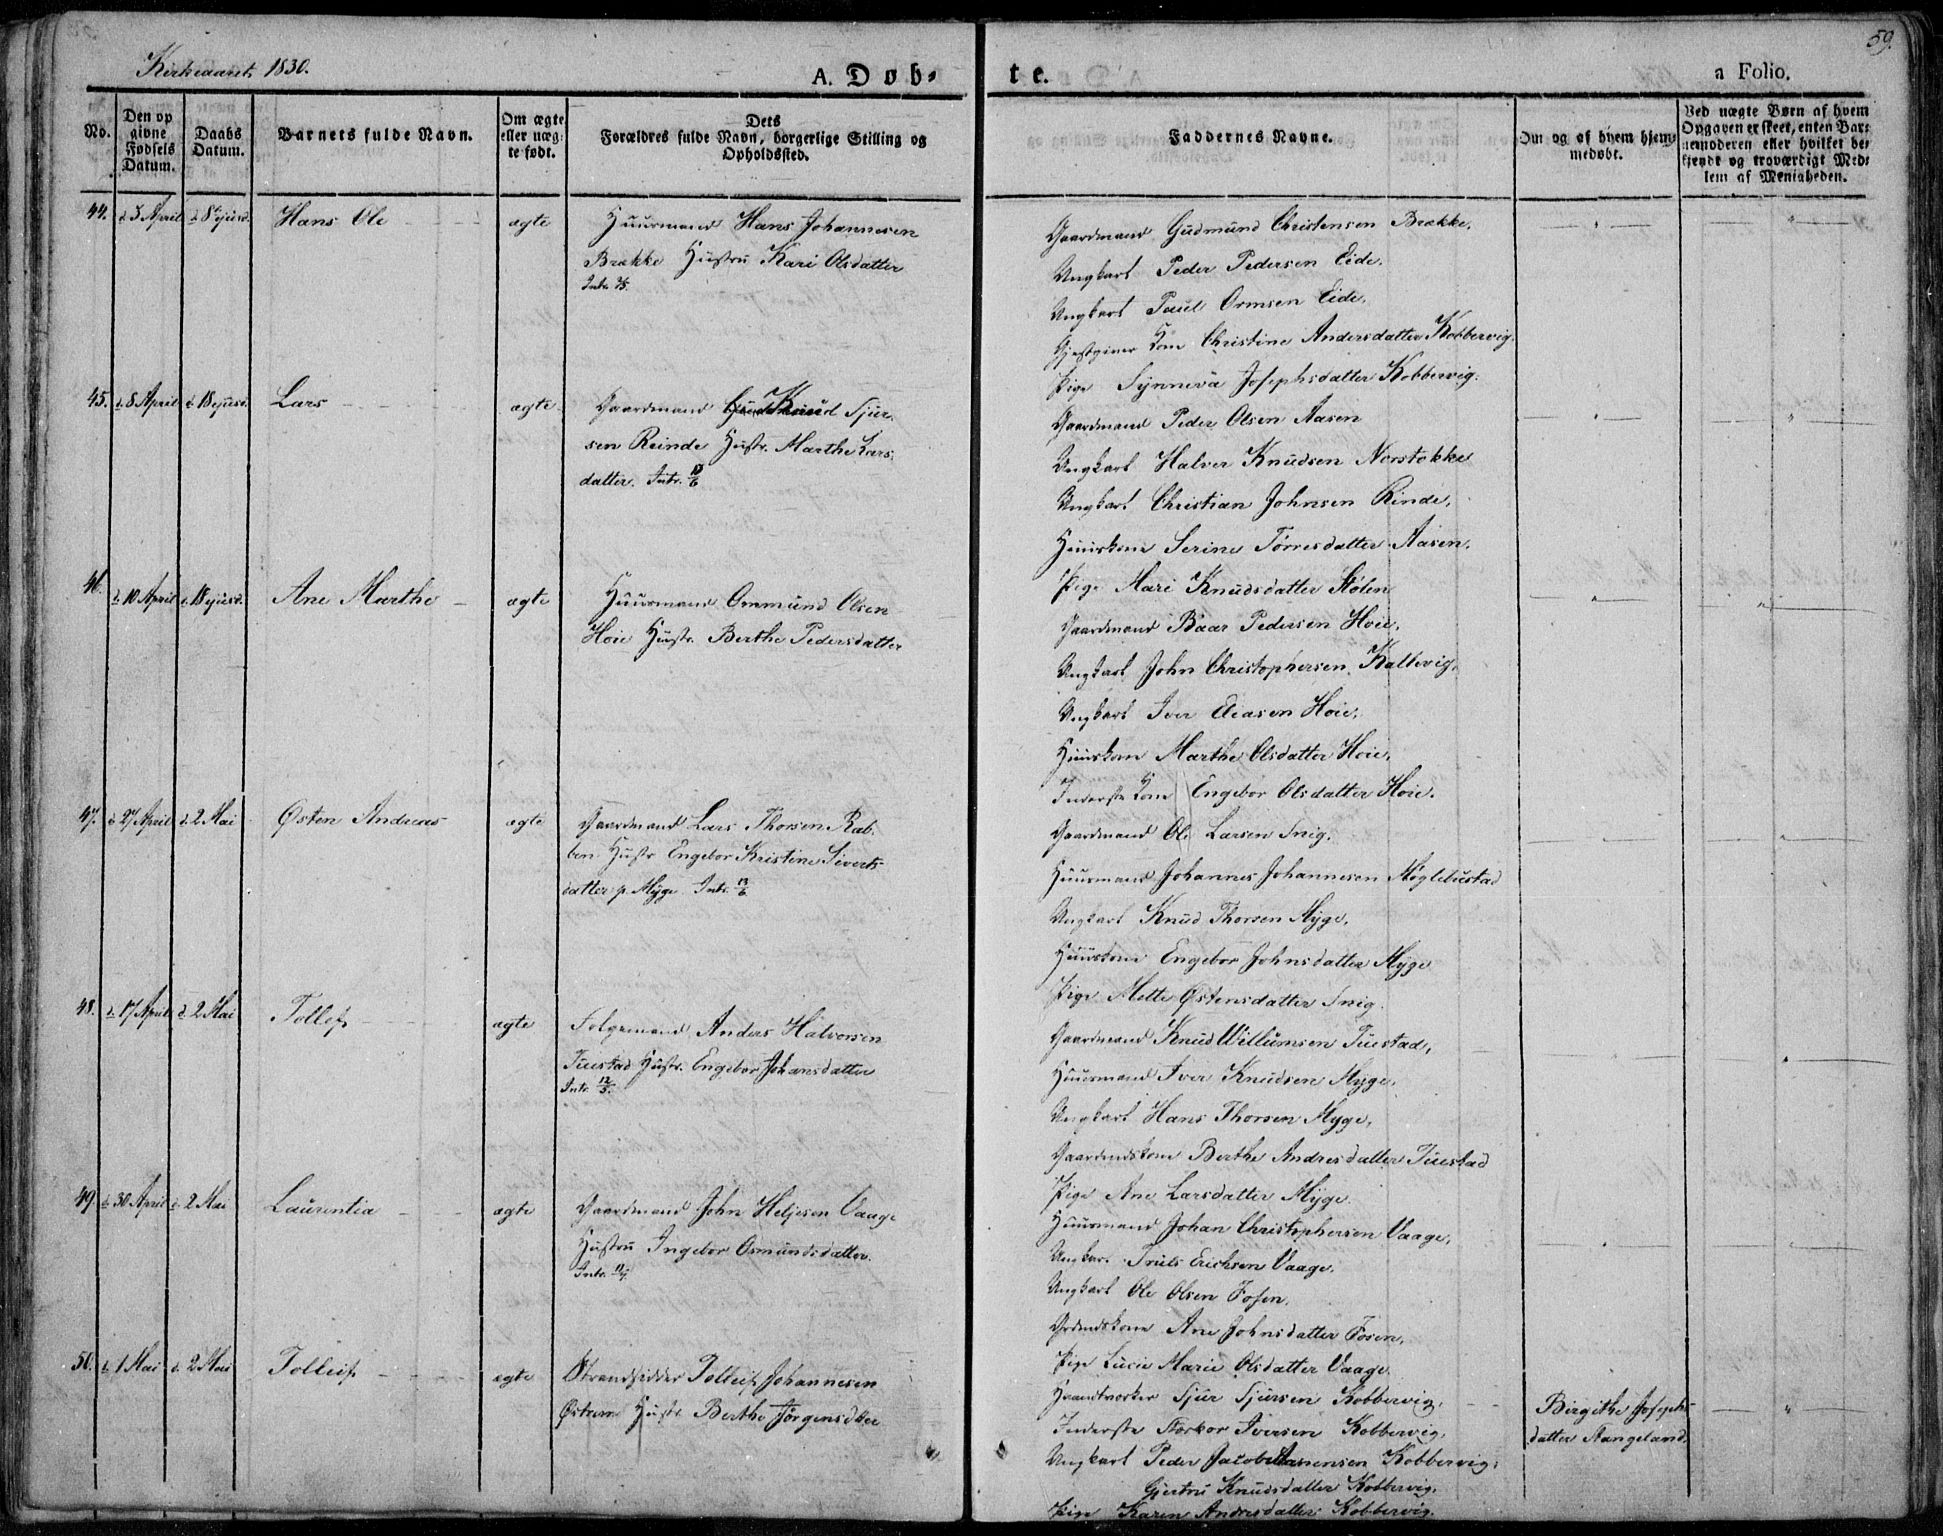 Kirkeaaret 1830.
A. Døb-
te.
a Folio.
59.
No.
Den op
givne
Fødsels
Datum.
Daabs
Datum.
Barnets fulde Navn.
Om ægte
eller uæg-
te født.
Dets
Forældres fulde Navn, borgerlige Stilling og
Opholdssted.
Faddernes Navne.
Om og af hvem hjem-
medøbt.
Ved uægte Børn af hvem
Opgaven er skeet, enten Bar-
nemoderen eller hvilket be-
kjendt og troværdigt Med-
lem af Menigheden.
44. d. 3 April d. 8de ejusd. Hans Ole ægte
Huusmand Hans Johannesen
Brække Hustru Kari Olsdatter
Intr.
Gaardmand Gudmund Christensen Brække.
Ungkarl Peder Pedersen Eide.
Ungkarl Paul Ormsen Eide.
Gjestgiver Kone Christine Andersdatter Kobbervig.
Pige Synneva Josephsdatter Kobbervig.
45. d. 8 April d. 18 ejusd. Lars ægte
Gaardmand Knud Sjur-
sen Reinde Hustr. Marthe Lars-
datter. Intr.
Gaardmand Peder Olsen Aasen
Ungkarl Halver Knudsen Norstokke
Ungkarl Christian Johnsen Rinde.
Huuskone Serine Tørresdatter Aasen.
Pige Mari Knudsdatter Stølen
46. d. 10 April d. 18 ejusd. Ane Marthe ægte
Huusmand Ommund Olsen
Hoie Hustr. Berthe Pedersdatter
Gaardmand Baar Pedersen Hoie.
Ungkarl John Christophersen Kaltevig.
Ungkarl Iver Eliasen Hoie.
Huuskone Marthe Olsdatter Hoie.
Inderste Kone Engebor Olsdatter Hoie.
47. d. 27 April d. 2 Mai Østen Andreas ægte
Gaardmand Lars Thorsen Rab-
ben Hustr Engebor Kristine Siverts
datter p. Myge. Intr. 13/6
Gaardmand Ole Larsen Snig.
Huusmand Johannes Johannesen Møglebustad
Ungkarl Knud Thorsen Myge.
Huuskone Engebor Johnsdatter Myge
Pige Mette Østensdatter Snig.
48. d. 17 April d. 2 Mai Tollef ægte
Folgemand Anders Halvorsen
Tuestad Hustr. Engebor Johansdatter
Intr. 12/5.
Gaardmand Knud Willumsen Tuestad,
Huusmand Iver Knudsen Myge.
Ungkarl Hans Thorsen Myge.
Gaardmdskone Berthe Andresdatter Tuestad
Pige Ane Larsdatter Myge.
49 d. 30 April d. 2 Mai Laurentia ægte
Gaardmand John Heljesen Vaage
Hustru Ingebor Osmundsdatter.
Intr.
Huusmand Johan Christophersen Vaage,
Ungkar. Truls Erichsen Vaage.
Ungkarl Ole Olsen Fosen.
Grdmdskone Ane Johnsdatter Fosen.
Pige Lucie Marie Olsdatter Vaage.
50. d. 1 Mai d. 2 Mai Tolleif ægte
Strandsidder Tolleif Johannesen
Østrem Hustr. Berthe Jørgensdtter
Haandværker Sjur Sjursen Kobbervig.
Inderste Torkor Iversen Kobbervig.
Ungkarl Peder Jacob Kobbervig.
Gjertru Knudsdatter Kobbervig.
Pige Karen Andresdatter Kobbervig.
Birgithe Josephs-
datter Stangeland.